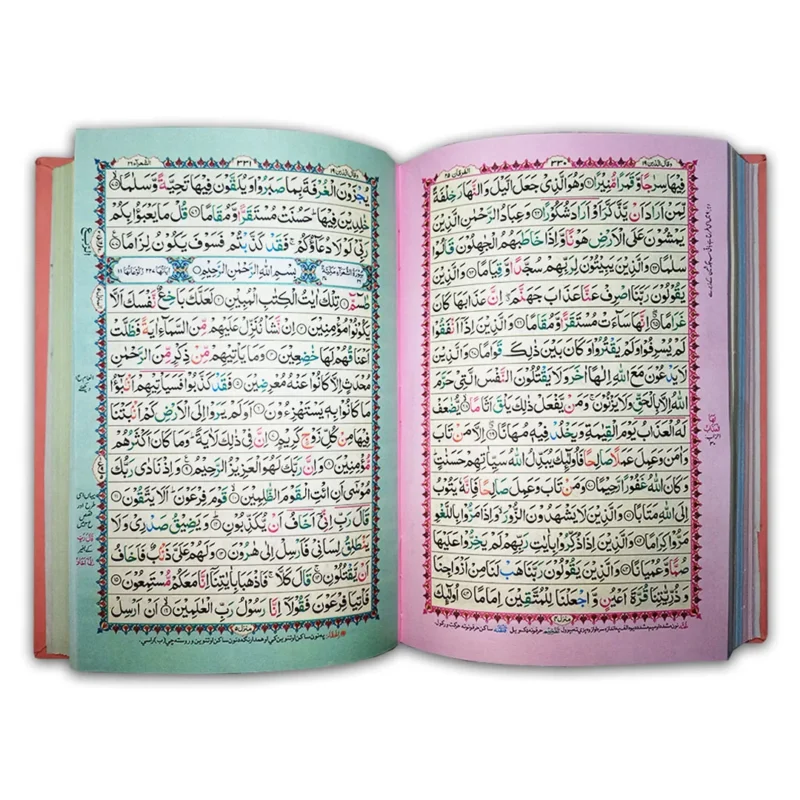 وقال الذين ۱۹ ۳۳۰ الفرقان ۲۵
فِيْهَا سِرٰجًا وَّقَمَرًا مُّنِيْرًا ۝ وَهُوَ الَّذِيْ جَعَلَ الَّيْلَ وَالنَّهَارَ خِلْفَةً
لِّمَنْ اَرَادَ اَنْ يَّذَّكَّرَ اَوْ اَرَادَ شُكُوْرًا ۝ وَعِبَادُ الرَّحْمٰنِ الَّذِيْنَ
يَمْشُوْنَ عَلَى الْاَرْضِ هَوْنًا وَّاِذَا خَاطَبَهُمُ الْجٰهِلُوْنَ قَالُوْا
سَلٰمًا ۝ وَالَّذِيْنَ يَبِيْتُوْنَ لِرَبِّهِمْ سُجَّدًا وَّقِيَامًا ۝ وَالَّذِيْنَ
يَقُوْلُوْنَ رَبَّنَا اصْرِفْ عَنَّا عَذَابَ جَهَنَّمَ اِنَّ عَذَابَهَا كَانَ
غَرَامًا ۝ اِنَّهَا سَآءَتْ مُسْتَقَرًّا وَّمُقَامًا ۝ وَالَّذِيْنَ اِذَآ اَنْفَقُوْا
لَمْ يُسْرِفُوْا وَلَمْ يَقْتُرُوْا وَكَانَ بَيْنَ ذٰلِكَ قَوَامًا ۝ وَالَّذِيْنَ
لَا يَدْعُوْنَ مَعَ اللّٰهِ اِلٰهًا اٰخَرَ وَلَا يَقْتُلُوْنَ النَّفْسَ الَّتِيْ حَرَّمَ
اللّٰهُ اِلَّا بِالْحَقِّ وَلَا يَزْنُوْنَ وَمَنْ يَّفْعَلْ ذٰلِكَ يَلْقَ اَثَامًا ۝ يُّضٰعَفْ
لَهُ الْعَذَابُ يَوْمَ الْقِيٰمَةِ وَيَخْلُدْ فِيْهٖ مُهَانًا ۝ اِلَّا مَنْ تَابَ
وَاٰمَنَ وَعَمِلَ عَمَلًا صَالِحًا فَاُولٰٓئِكَ يُبَدِّلُ اللّٰهُ سَيِّاٰتِهِمْ حَسَنٰتٍ
وَكَانَ اللّٰهُ غَفُوْرًا رَّحِيْمًا ۝ وَمَنْ تَابَ وَعَمِلَ صَالِحًا فَاِنَّهٗ يَتُوْبُ
اِلَى اللّٰهِ مَتَابًا ۝ وَالَّذِيْنَ لَا يَشْهَدُوْنَ الزُّوْرَ وَاِذَا مَرُّوْا بِاللَّغْوِ
مَرُّوْا كِرَامًا ۝ وَالَّذِيْنَ اِذَا ذُكِّرُوْا بِاٰيٰتِ رَبِّهِمْ لَمْ يَخِرُّوْا عَلَيْهَا
صُمًّا وَّعُمْيَانًا ۝ وَالَّذِيْنَ يَقُوْلُوْنَ رَبَّنَا هَبْ لَنَا مِنْ اَزْوَاجِنَا
وَذُرِّيّٰتِنَا قُرَّةَ اَعْيُنٍ وَّاجْعَلْنَا لِلْمُتَّقِيْنَ اِمَامًا ۝ اُولٰٓئِكَ
وقال الذين ۱۹ ۳۳۱ الشعرآء ۲۶
يُجْزَوْنَ الْغُرْفَةَ بِمَا صَبَرُوْا وَيُلَقَّوْنَ فِيْهَا تَحِيَّةً وَّسَلٰمًا ۝
خٰلِدِيْنَ فِيْهَا حَسُنَتْ مُسْتَقَرًّا وَّمُقَامًا ۝ قُلْ مَا يَعْبَؤُا بِكُمْ
رَبِّيْ لَوْلَا دُعَآؤُكُمْ فَقَدْ كَذَّبْتُمْ فَسَوْفَ يَكُوْنُ لِزَامًا ۝
سورة الشعرآء مكية بِسْمِ اللّٰهِ الرَّحْمٰنِ الرَّحِيْمِ اياتها ۲۲۷ ركوعاتها ۱۱
طٰسٓمّٓ ۝ تِلْكَ اٰيٰتُ الْكِتٰبِ الْمُبِيْنِ ۝ لَعَلَّكَ بَاخِعٌ نَّفْسَكَ اَلَّا
يَكُوْنُوْا مُؤْمِنِيْنَ ۝ اِنْ نَّشَاْ نُنَزِّلْ عَلَيْهِمْ مِّنَ السَّمَآءِ اٰيَةً فَظَلَّتْ
اَعْنَاقُهُمْ لَهَا خٰضِعِيْنَ ۝ وَمَا يَاْتِيْهِمْ مِّنْ ذِكْرٍ مِّنَ الرَّحْمٰنِ
مُحْدَثٍ اِلَّا كَانُوْا عَنْهُ مُعْرِضِيْنَ ۝ فَقَدْ كَذَّبُوْا فَسَيَاْتِيْهِمْ اَنْۢبٰٓؤُا
مَا كَانُوْا بِهٖ يَسْتَهْزِءُوْنَ ۝ اَوَلَمْ يَرَوْا اِلَى الْاَرْضِ كَمْ اَنْۢبَتْنَا
فِيْهَا مِنْ كُلِّ زَوْجٍ كَرِيْمٍ ۝ اِنَّ فِيْ ذٰلِكَ لَاٰيَةً وَمَا كَانَ اَكْثَرُهُمْ
مُّؤْمِنِيْنَ ۝ وَاِنَّ رَبَّكَ لَهُوَ الْعَزِيْزُ الرَّحِيْمُ ۝ وَاِذْ نَادٰى رَبُّكَ
مُوْسٰٓى اَنِ ائْتِ الْقَوْمَ الظّٰلِمِيْنَ ۝ قَوْمَ فِرْعَوْنَ اَلَا يَتَّقُوْنَ ۝
قَالَ رَبِّ اِنِّيْٓ اَخَافُ اَنْ يُّكَذِّبُوْنِ ۝ وَيَضِيْقُ صَدْرِيْ وَلَا
يَنْطَلِقُ لِسَانِيْ فَاَرْسِلْ اِلٰى هٰرُوْنَ ۝ وَلَهُمْ عَلَيَّ ذَنْۢبٌ فَاَخَافُ
اَنْ يَّقْتُلُوْنِ ۝ قَالَ كَلَّا فَاذْهَبَا بِاٰيٰتِنَآ اِنَّا مَعَكُمْ مُّسْتَمِعُوْنَ ۝
فَاْتِيَا فِرْعَوْنَ فَقُوْلَآ اِنَّا رَسُوْلُ رَبِّ الْعٰلَمِيْنَ ۝ اَنْ اَرْسِلْ